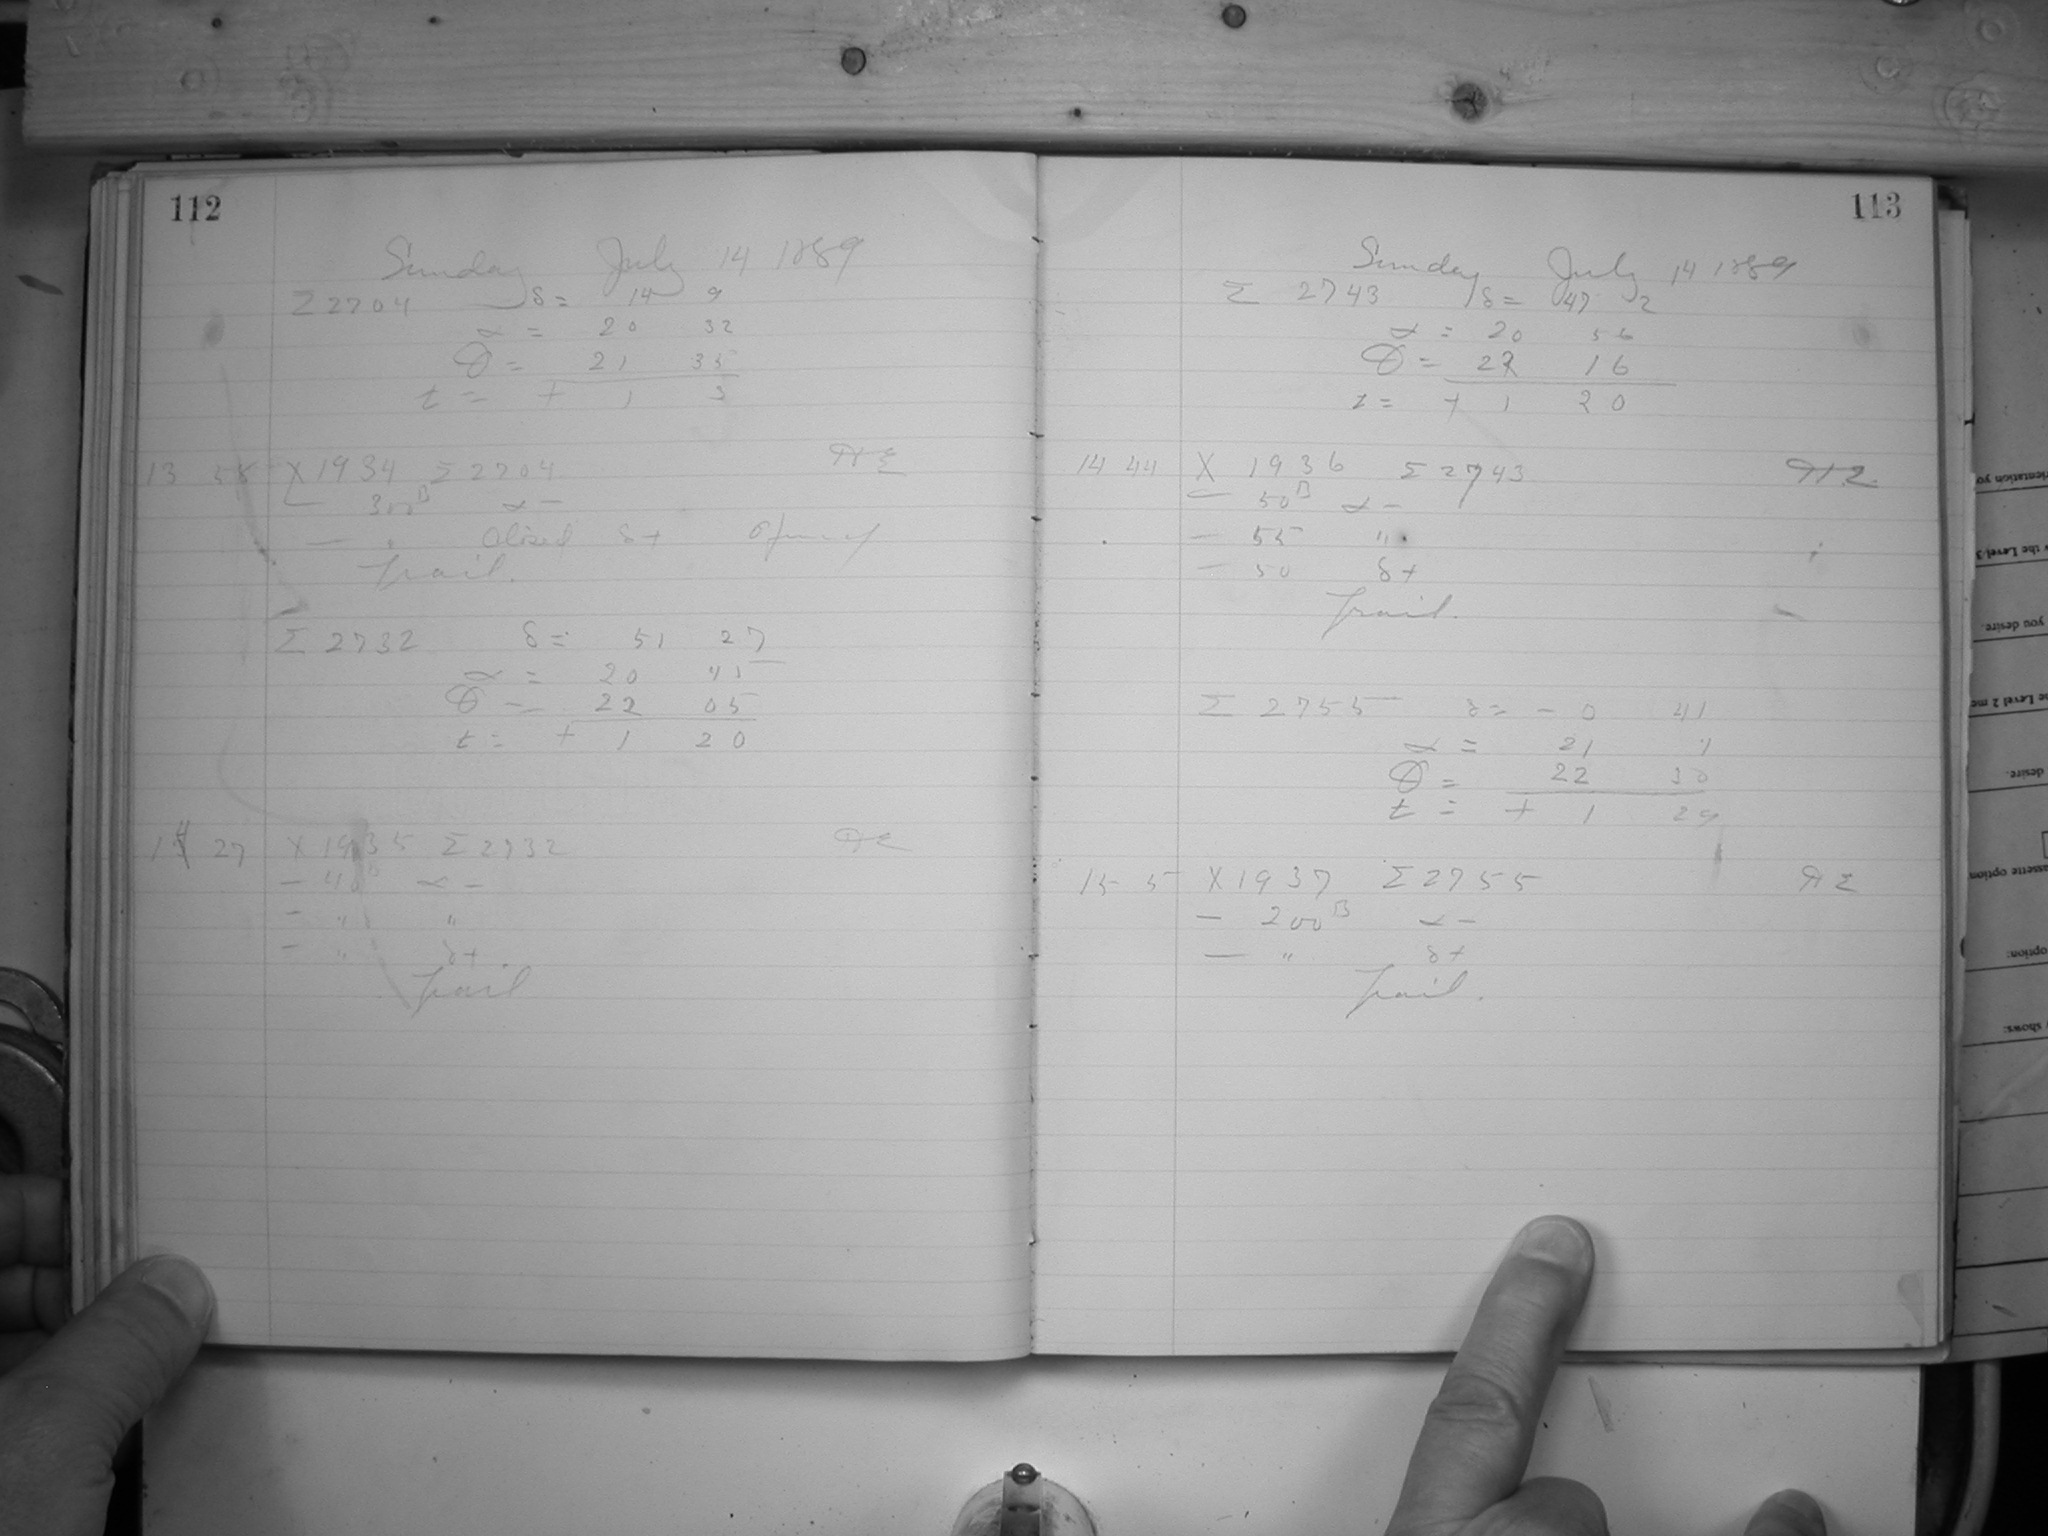 112
Sunday July 14 1889
Σ 2704 δ = 14 9
α = 20 32
θ = 21 35
t = + 1 3
13 58 X 1934 Σ 2704
— 300 B α –
— " Closed δ + Opened
Trail.
Σ 2732 δ = 51 27
α = 20 45
θ = 22 05
t = + 1 20
14 27 X 1935 Σ 2732
– 40 B α –
– " "
– " δ +
Trail
113
Sunday July 14 1889
Σ 2743 δ = 47 2
α = 20 56
θ = 22 16
t = + 1 20
14 44 X 1936 Σ 2743
– 50 B α –
– 55 "
– 50 δ +
Trail.
Σ 2755 δ = – 0 41
α = 21 1
θ = 22 30
t = + 1 29
15 5 X 1937 Σ 2755
— 200 B α –
— " δ +
Trail.
you desire.
desire.
option:
shows: